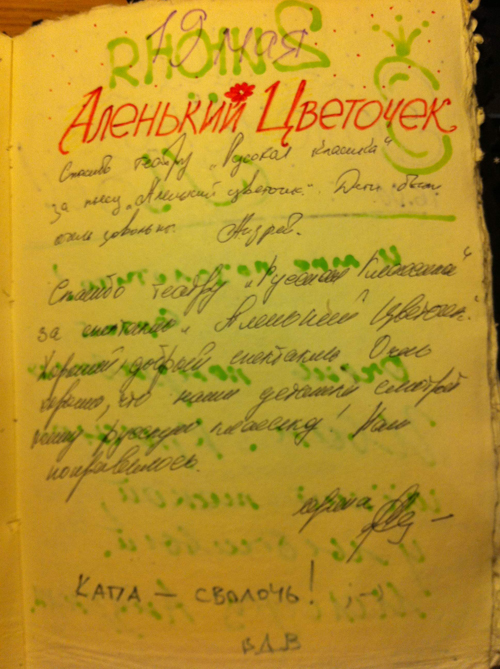 19 мая
Аленький Цветочек
Спасибо театру „Русская классика"
за пьесу „Аленький цветочек". Дети были
очень довольны. Андрей.
Спасибо театру „Русская Классика"
за спектакль „Аленький Цветочек".
Хороший, добрый спектакль. Очень
что наши деточки смотрят
нашу русскую классику! Нам
понравилось.
Капа – сволочь!
ВДВ